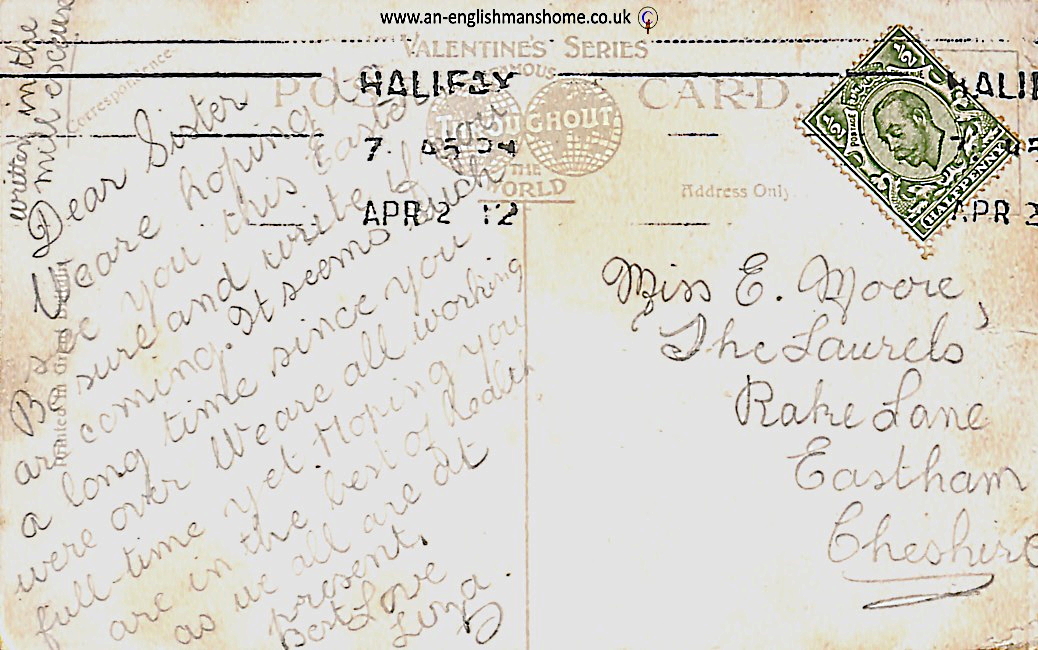 www.an-englishmans​home.co.uk ©
VALENTINE'S SERIES
POST CARD.
FAMOUS
THROUGHOUT
THE
WORLD
Correspondence
Address Only.
Printed in Great Britain
HALIFAX
7. 45 PM
APR 2 12
HALIF
7 45
APR 2
½
½
POSTAGE
REVENUE
HALFPENNY
written in the
mill
Dear Sister
We are hoping to
see you this Easter
Be sure and write if you
are coming. It seems such
a long time since you
were over We are all working
full-time yet. Hoping you
are in the best of health
as we all are at
present.
Best Love
Miss E. Moore,
The Laurels
Rake Lane
Eastham
Cheshire